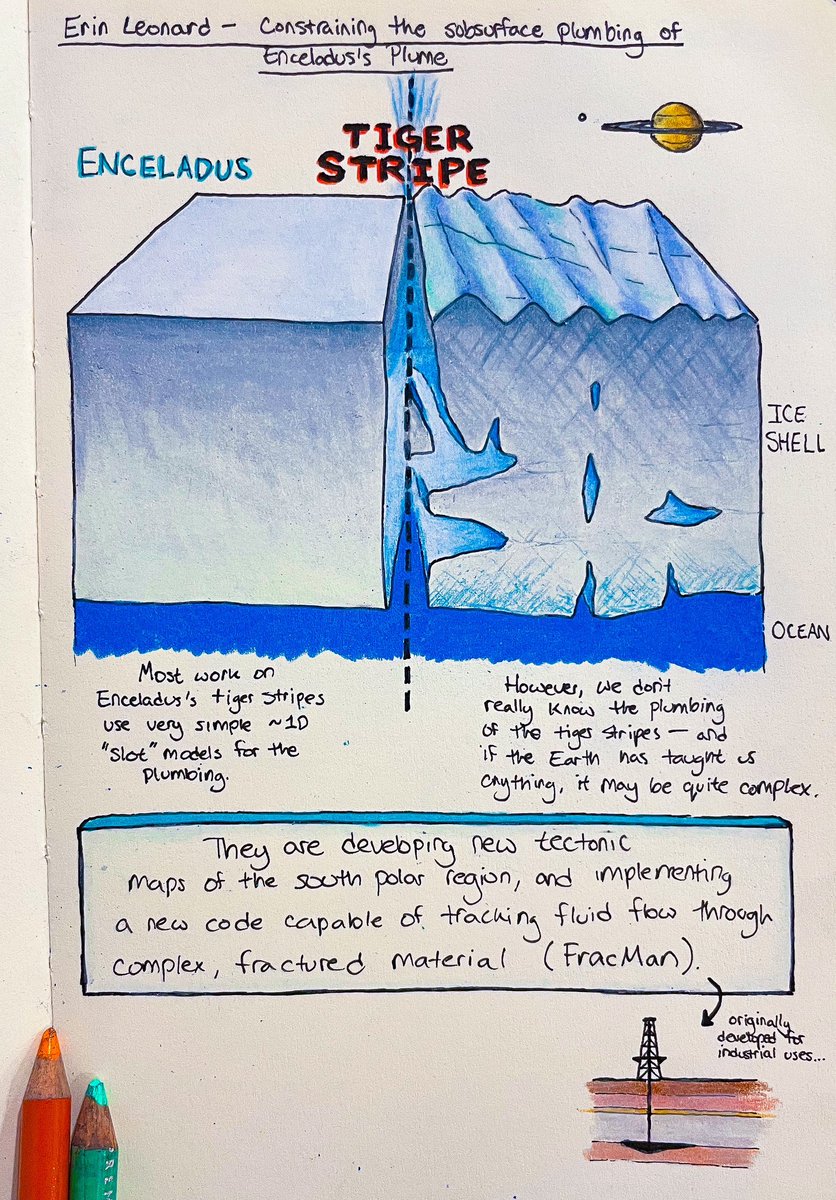 Erin Leonard – Constraining the subsurface plumbing of
Enceladus's Plume
ENCELADUS
TIGER
STRIPE
ICE
SHELL
OCEAN
Most work on
Enceladus's tiger stripes
use very simple ~1D
"slot" models for the
plumbing.
However, we don't
really know the plumbing
of the tiger stripes – and
if the Earth has taught us
anything, it may be quite complex.
They are developing new tectonic
maps of the south polar region, and implementing
a new code capable of tracking fluid flow through
complex, fractured material (FracMan).
originally
developed for
industrial uses...